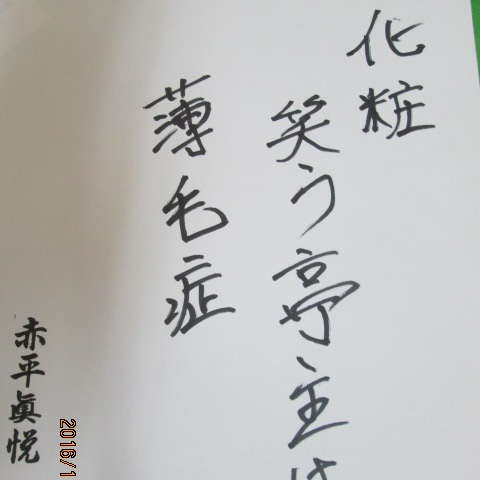 化粧
笑う亭主は
薄毛症
赤平眞悦
2016/1